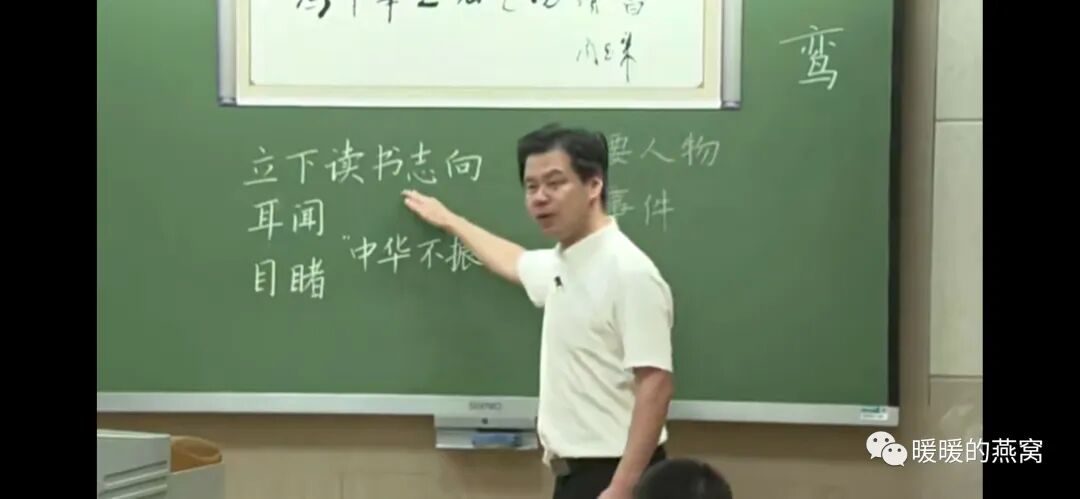 周恩来
鸾
立下读书志向
耳闻
目睹
“中华不振
要人物
事件
暖暖的燕窝